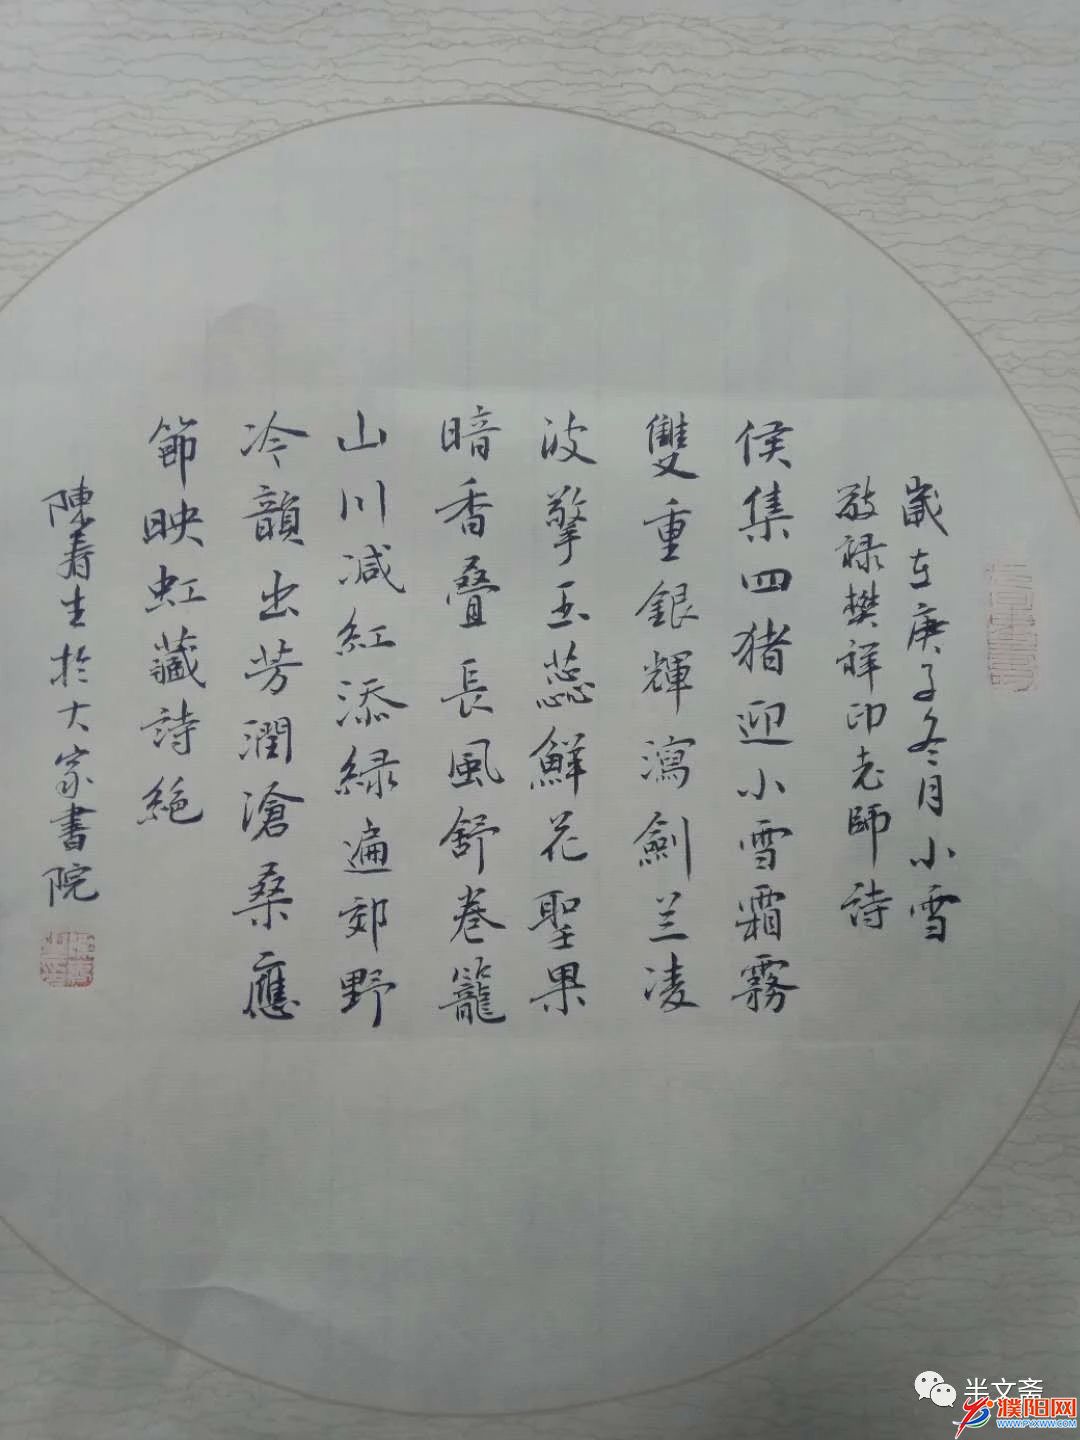 歲在庚子冬月小雪
敬禄樊祥印老師詩
侯集四猪迎小雪霜霧
雙重銀輝瀉劍兰凌
波擎玉蕊鮮花聖果
暗香叠長風舒卷籠
山川减紅添緑遍郊野
冷韻出芳潤滄桑應
節映虹藏詩絕
陳寿生於大家書院
半文斋
濮阳网
www.pyxww.com